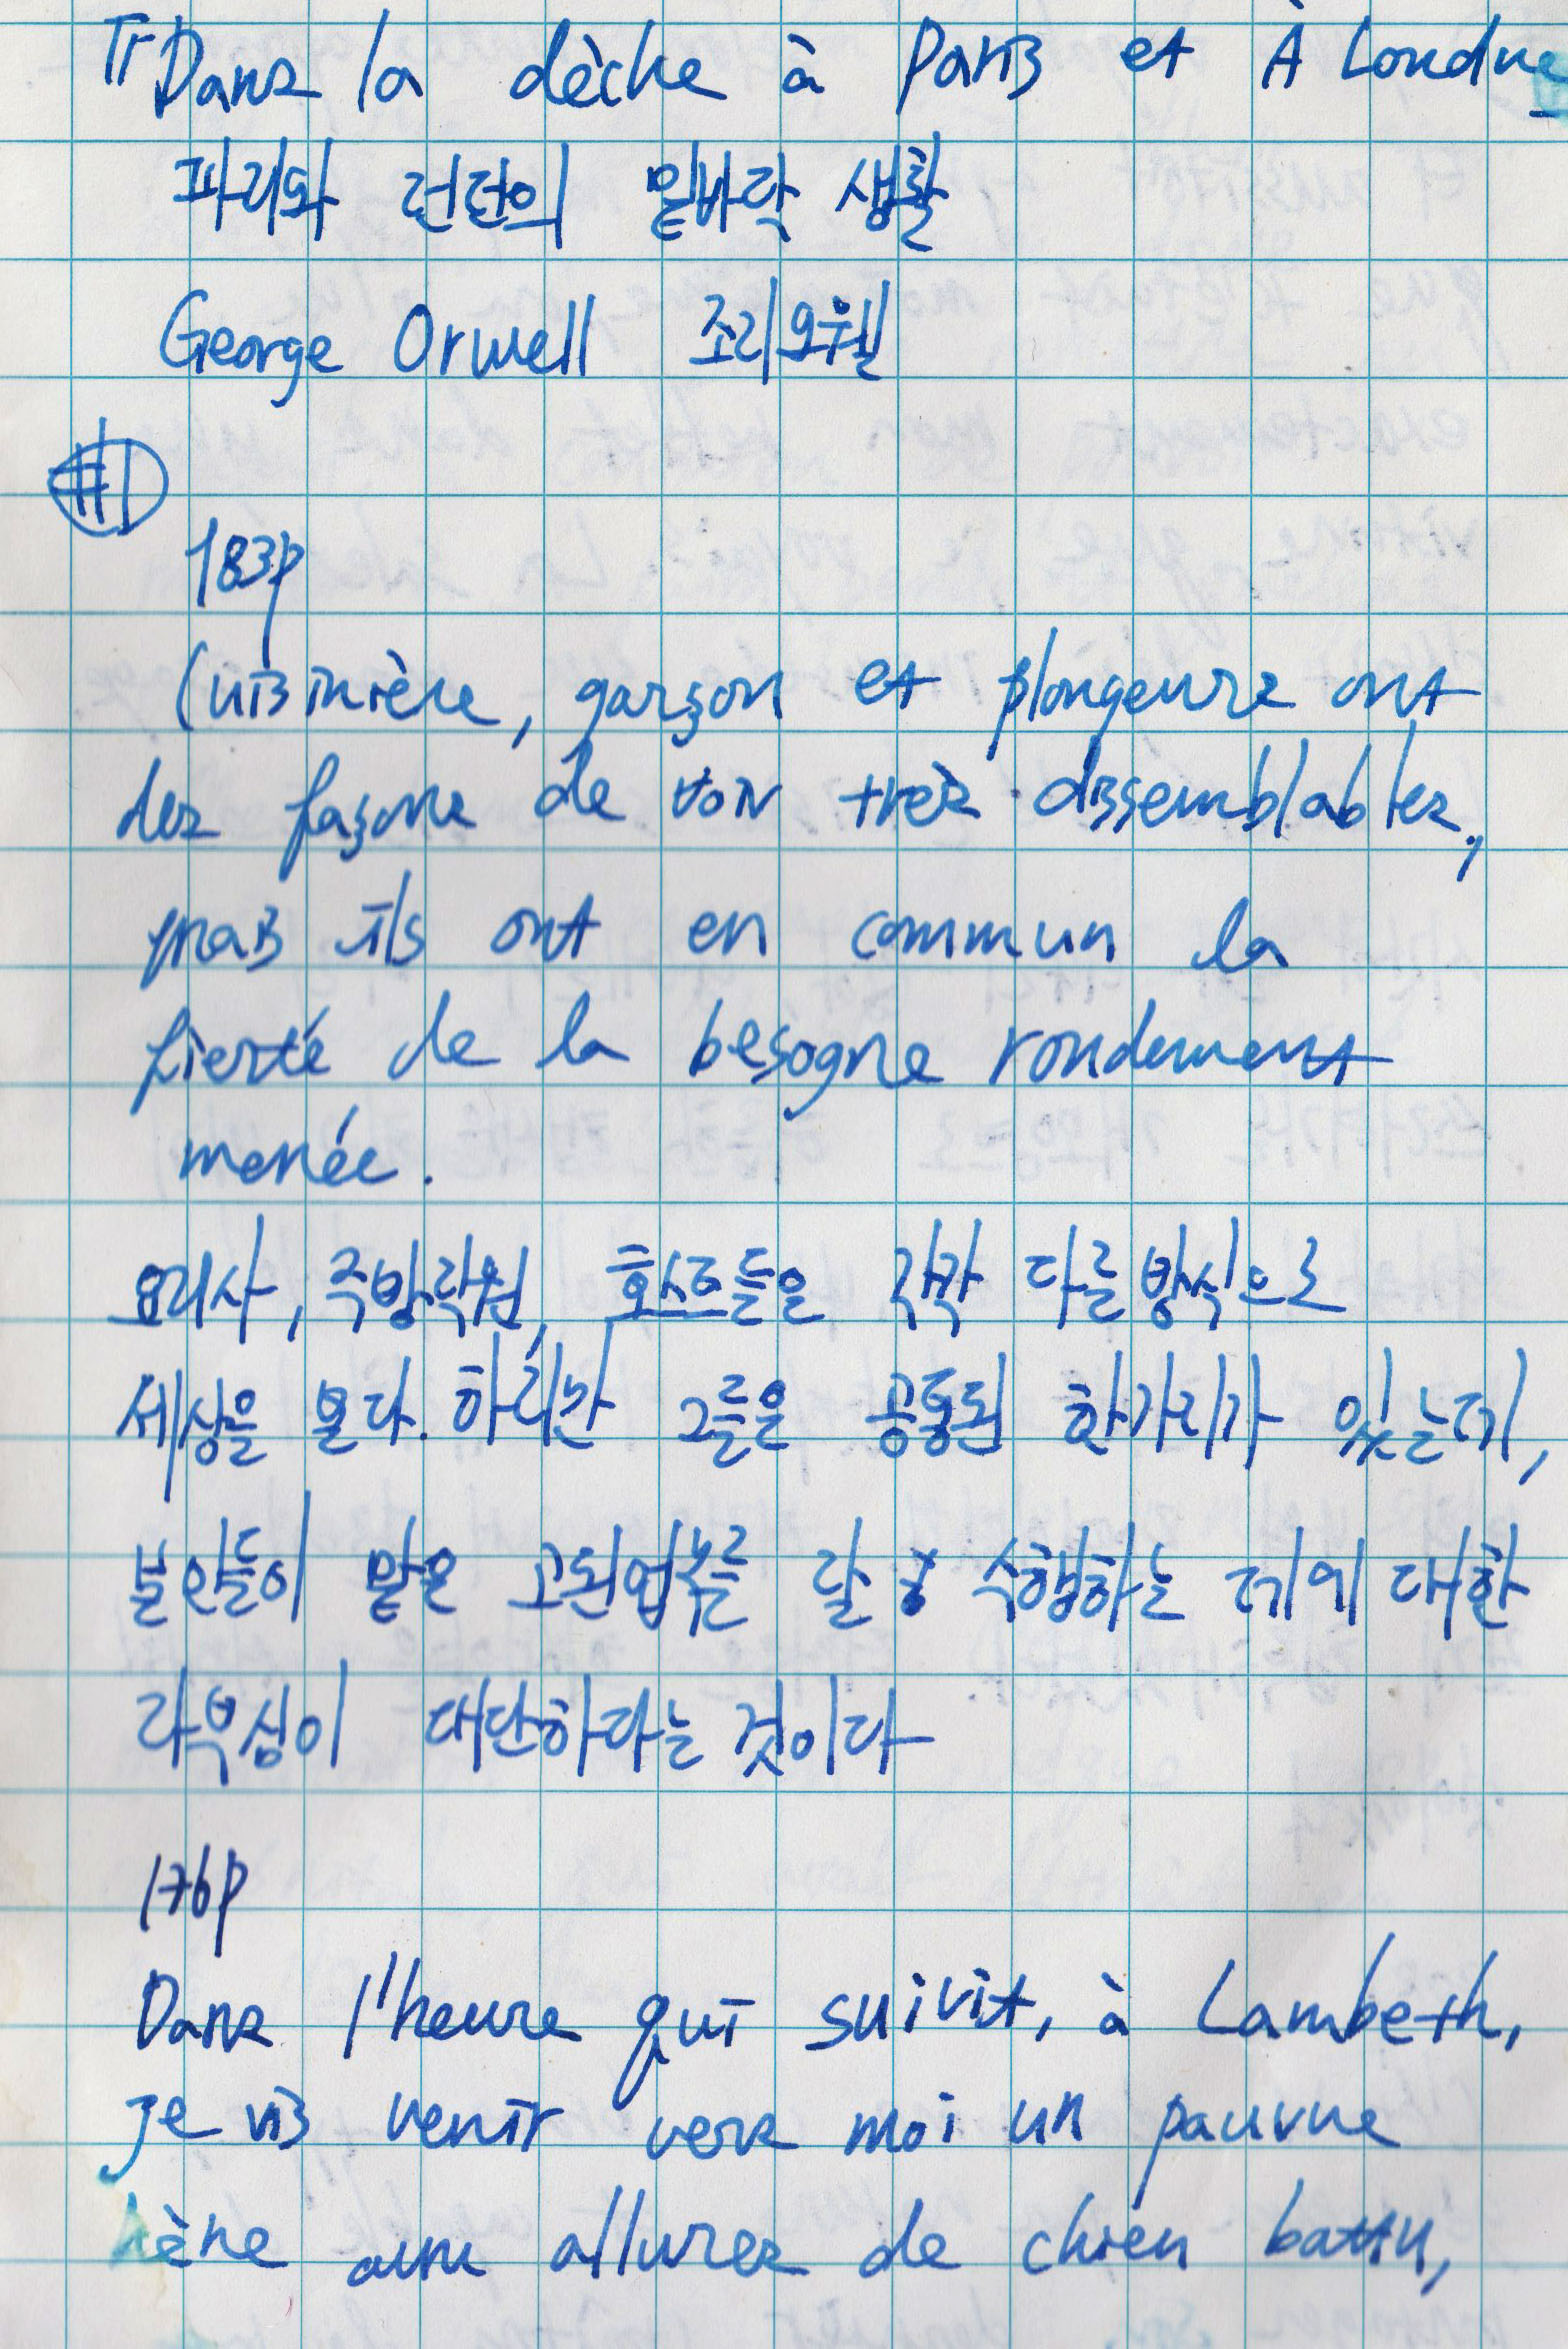 Tr Dans la dèche à Paris et À Londre
파리와 런던의 밑바닥 생활
George Orwell 조지오웰
#1
183p
Cuisinière, garçon et plongeurs ont
des façons de voir très dissemblables,
mais ils ont en commun la
fierté de la besogne rondement
menée.
요리사, 주방직원, 호스트들은 각각 다른방식으로
세상을 본다. 하지만 그들은 공통된 한가지가 있는데,
본인들이 맡은 고된업무를 잘 수행하는 데에 대한
자부심이 대단하다는 것이다
176p
Dans l'heure qui suivit, à Lambeth,
je vis venir vers moi un pauvre
hère aux allures de chien battu,